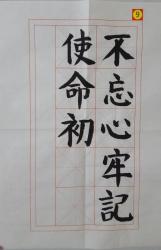 9
不忘心牢記
使命初